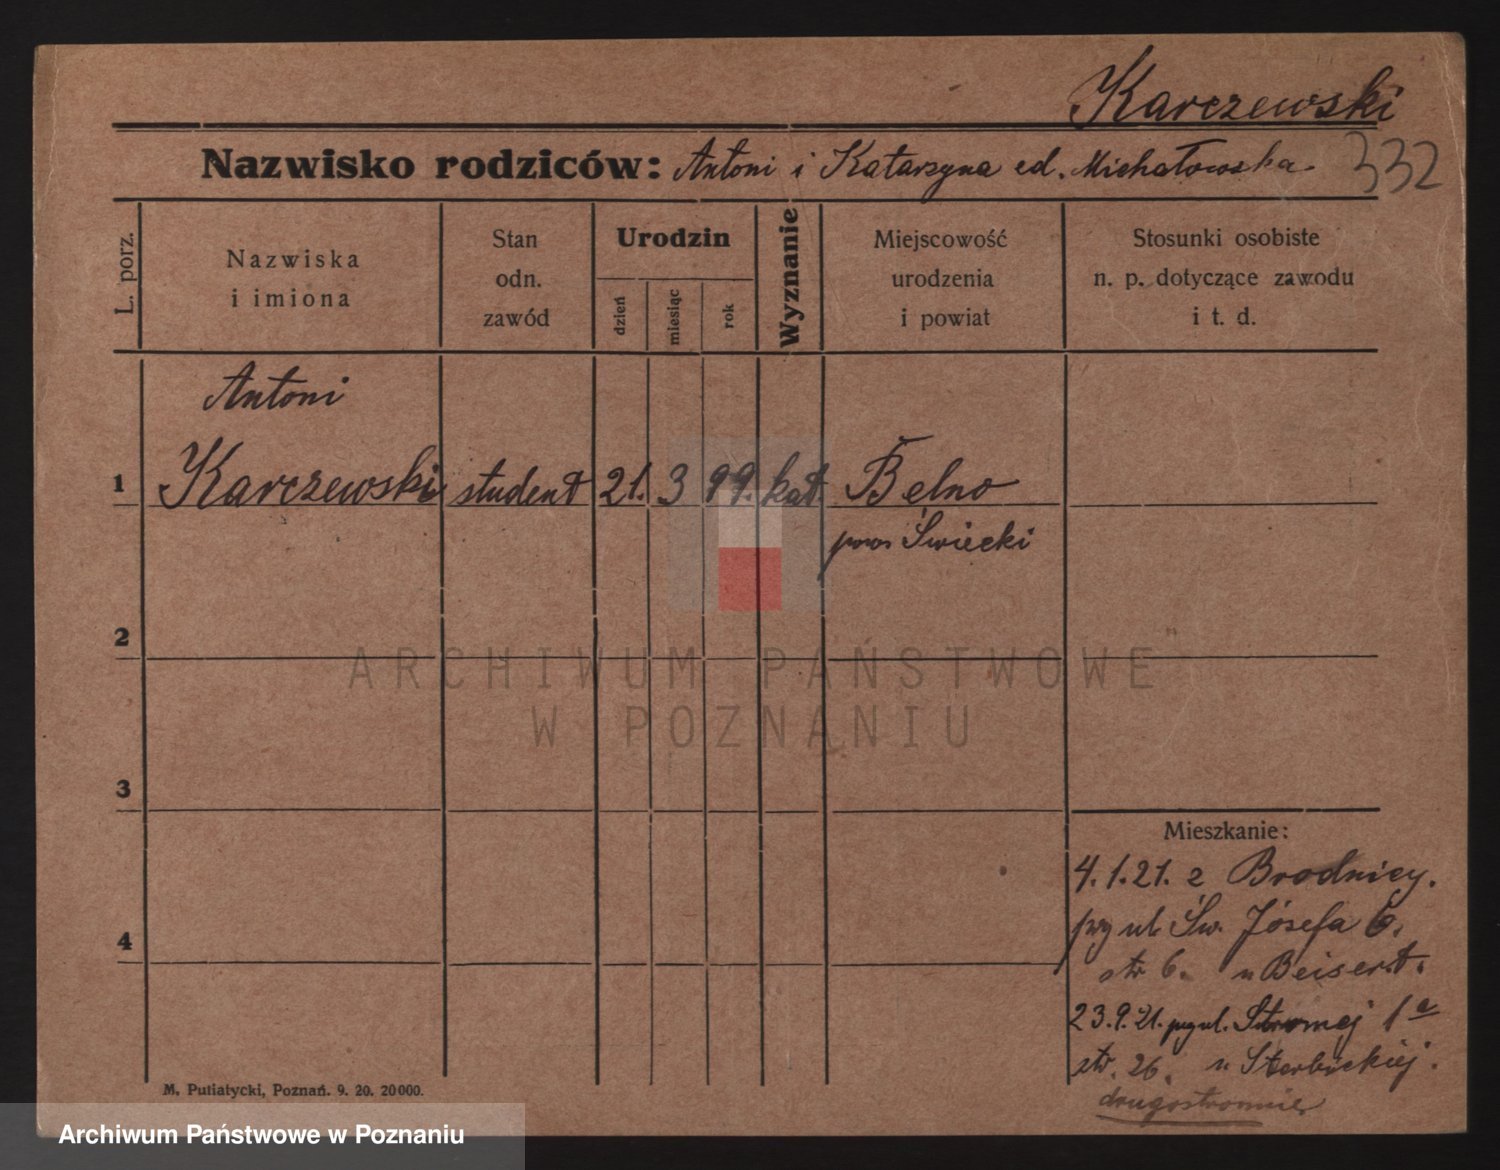 Karczewski
Nazwisko rodziców: Antoni i Katarzyna ed. Michałowska.
332
L. porz.
Nazwiska
i imiona
Stan
odn.
zawód
Urodzin
dzień
miesiąc
rok
Wyznanie
Miejscowość
urodzenia
i powiat
Stosunki osobiste
n. p. dotyczące zawodu
i t. d.
Antoni
1 Karczewski student 21. 3 99. kat Belno
pow Świecki
2
3
4
Mieszkanie:
4.1.21. z Brodnicy.
przy ul. Św. Józefa 6.
str 6. u Beisert.
23.9.21. przy ul. Stromej 1a
str. 26. u
drugostronnie
M. Putiatycki, Poznań. 9. 20. 20000.
ARCHIWUM PAŃSTWOWE
W POZNANIU
Archiwum Państwowe w Poznaniu